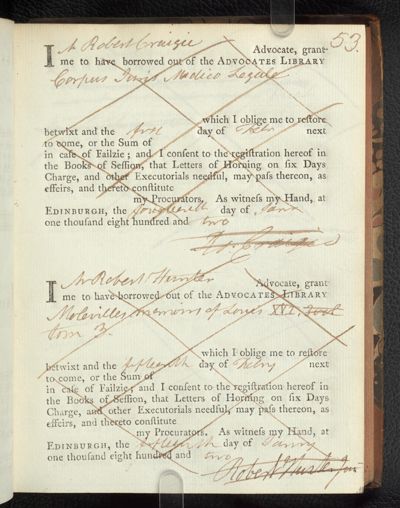 53.
I, Mr Robert Craigie Advocate, grant
me to have borrowed out of the ADVOCATES LIBRARY
Corpus Juris Medico Legale
which I oblige me to reſtore
betwixt and the first day of Febry next
to come, or the Sum of
in caſe of Failzie; and I conſent to the regiſtration hereof in
the Books of Seſſion, that Letters of Horning on ſix Days
Charge, and other Executorials needful, may paſs thereon, as
effeirs, and thereto conſtitute
my Procurators. As witneſs my Hand, at
EDINBURGH, the fourteenth day of Janry
one thouſand eight hundred and two
Ro. Craigie
I, Mr Robert Hunter Advocate, grant
me to have borrowed out of the ADVOCATES LIBRARY
Molevilles memoirs of Louis XVI,
tom 3.
which I oblige me to reſtore
betwixt and the fifteenth day of Febry next
to come, or the Sum of
in caſe of Failzie; and I conſent to the regiſtration hereof in
the Books of Seſſion, that Letters of Horning on ſix Days
Charge, and other Executorials needful, may paſs thereon, as
effeirs, and thereto conſtitute
my Procurators. As witneſs my Hand, at
EDINBURGH, the fifteenth day of Janry
one thouſand eight hundred and two
Robert Hunter Junr